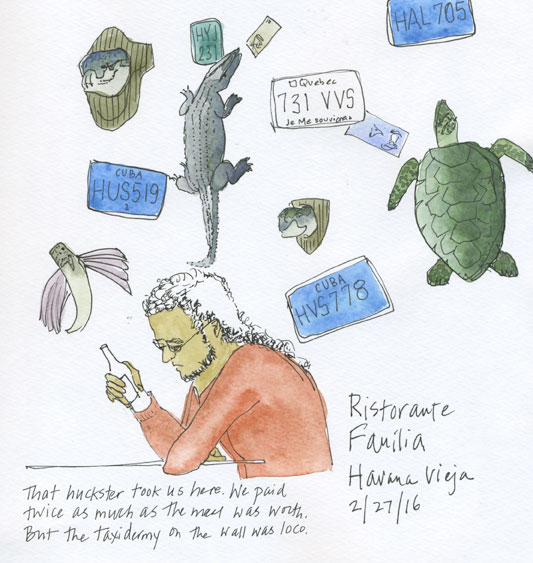 HAL 705
HYJ
231
Quebec
731 VVS
Je Me souviens
CUBA
HUS519
2
CUBA
HVS778
Ristorante
Familia
Havana Vieja
2/27/16
That huckster took us here. We paid
twice as much as the meal was worth.
But the taxidermy on the wall was loco.